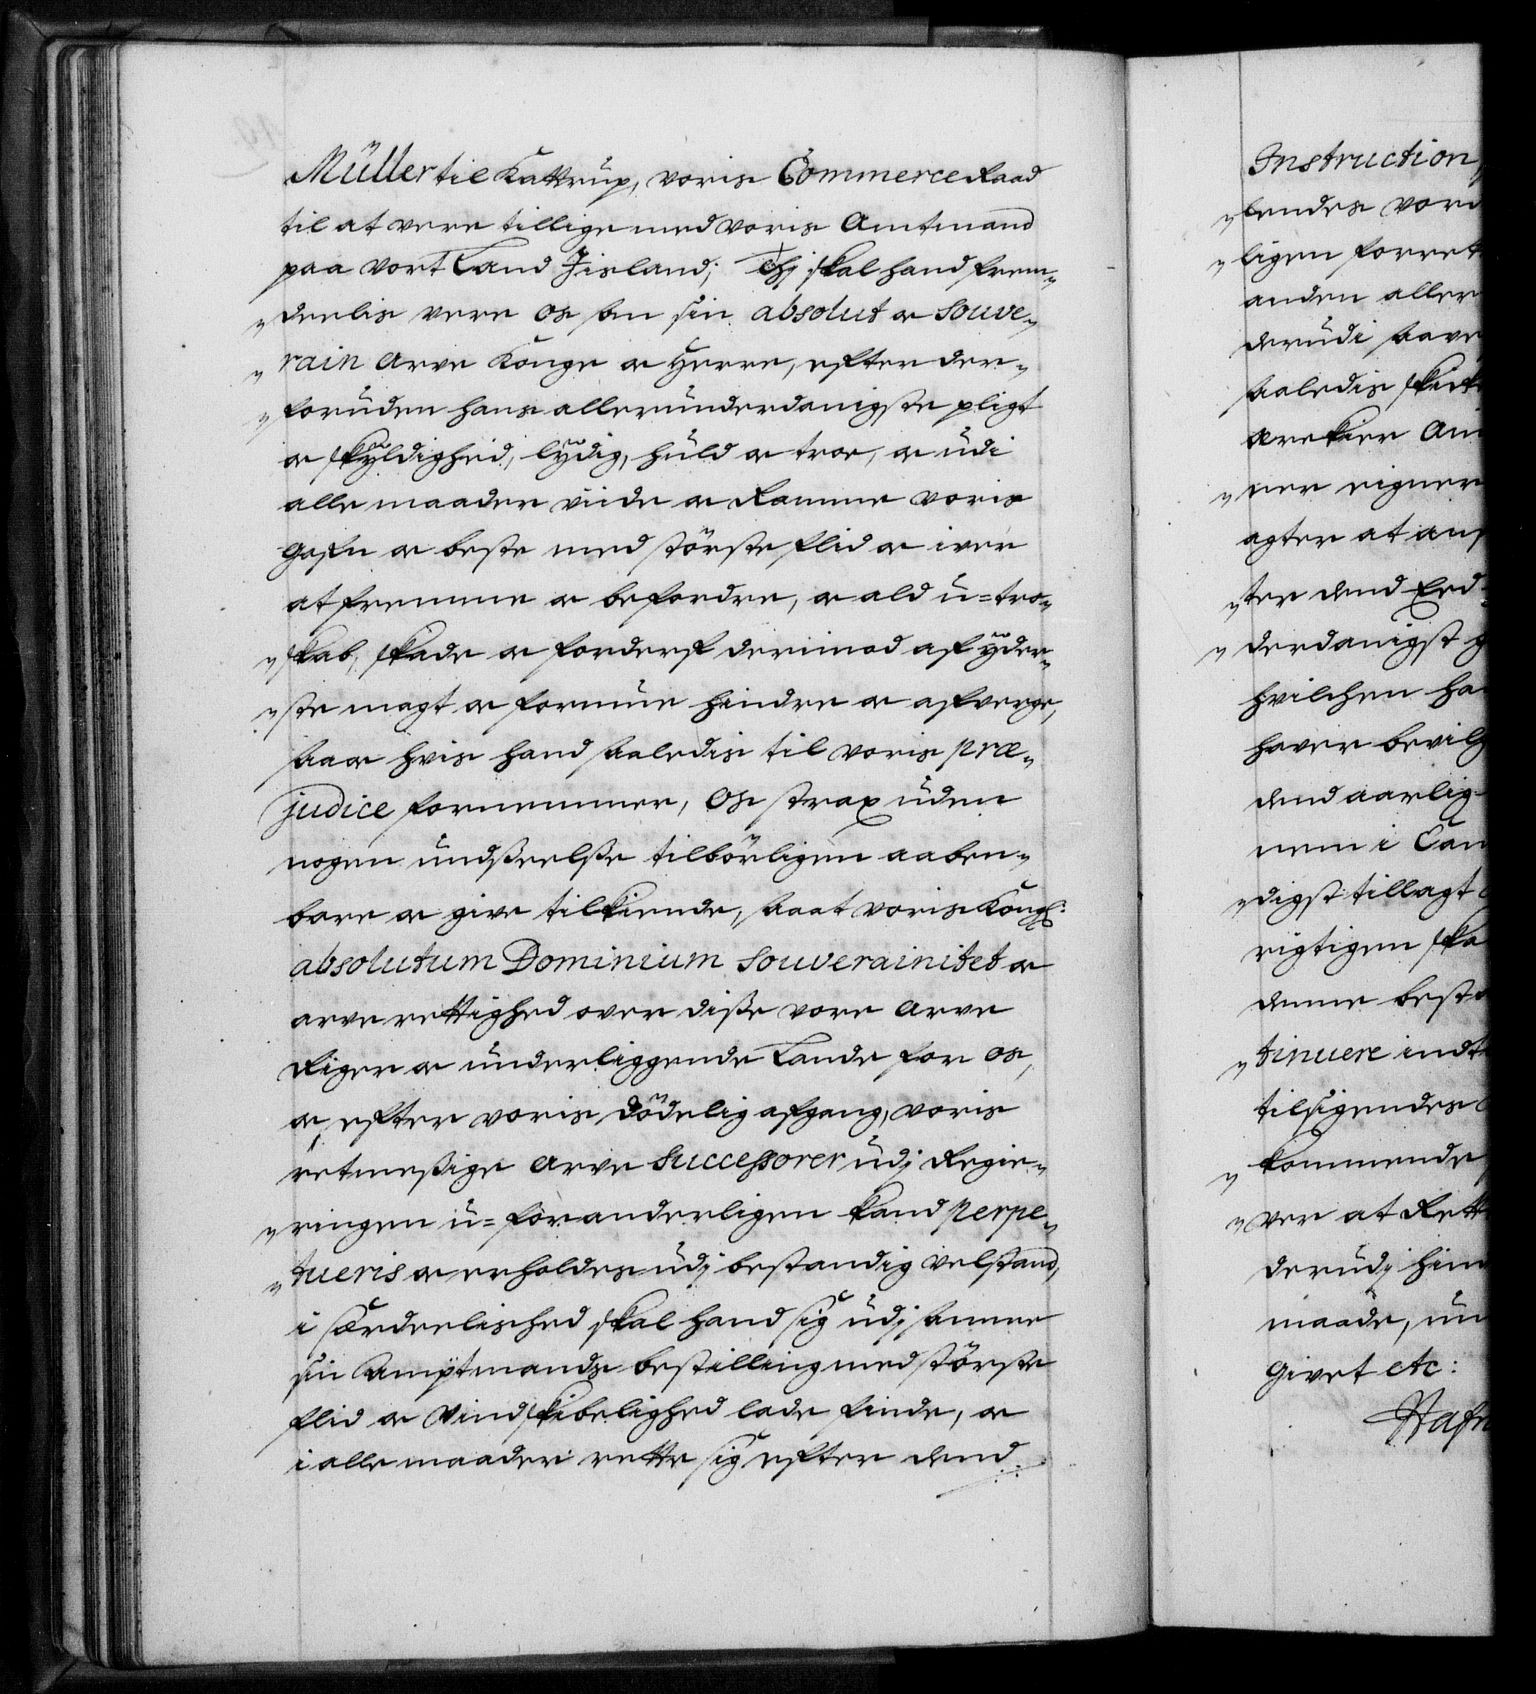 Müller til Kattrup, voris Commerce Raad
til at vere tillige med voris Amtmand
paa vort Land Jisland; Thj skal hand frem„
„deelis vere os som sin absolut oc souve„
„rain Arve Konge oc Herre, efter der„
„foruden hans allerunderdanigste pligt
oc skÿldighed, lÿdig, huld oc troe, oc udi
alle maader viide oc Ramme voris
gafn oc beste med störste flid oc iver
at fremme oc befordre, oc ald u=tro„
„skab, skade oc forderf derimod af ÿder„
„ste magt oc formue hindre oc afverge,
saa oc hvis hand saaledis til voris præ„
judice fornemmer, Os strax uden
nogen undskeelsse tilbörligen aaben„
bare oc give tilkiende, saa at voris Kongl:
absolutum Dominium souverainitet oc
arve rettighed over disse vore Arve
Riger oc underliggende Lande for os,
oc, efter voris dödelig afgang, voris
retmessige Arve Successorer udj Regie„
„ringen u=foranderligen kand perpe„
„tueris oc erholdes udj bestandig velstand,
i særdeelished skal hand sig udj samme
sin Amptmands bestilling med störste
flid oc Vindskibelighed lade finde, oc
i alle maader rette sig efter dend
Instruction
„lendes vor
„ligen forret
anden aller
derudi have
saaledis sker
ærekier
„ner eigner
agter at
„ter dend Eed
„derdanigst
hvilchen
haver bevilg
dend aarlig
nem i
„digst tillagt
rigtigen ska
denne best
„tinuere indt
tilsigendes
„kommende
„ver at Rett
derudj hin
maade, un
Givet etc:
Hafn